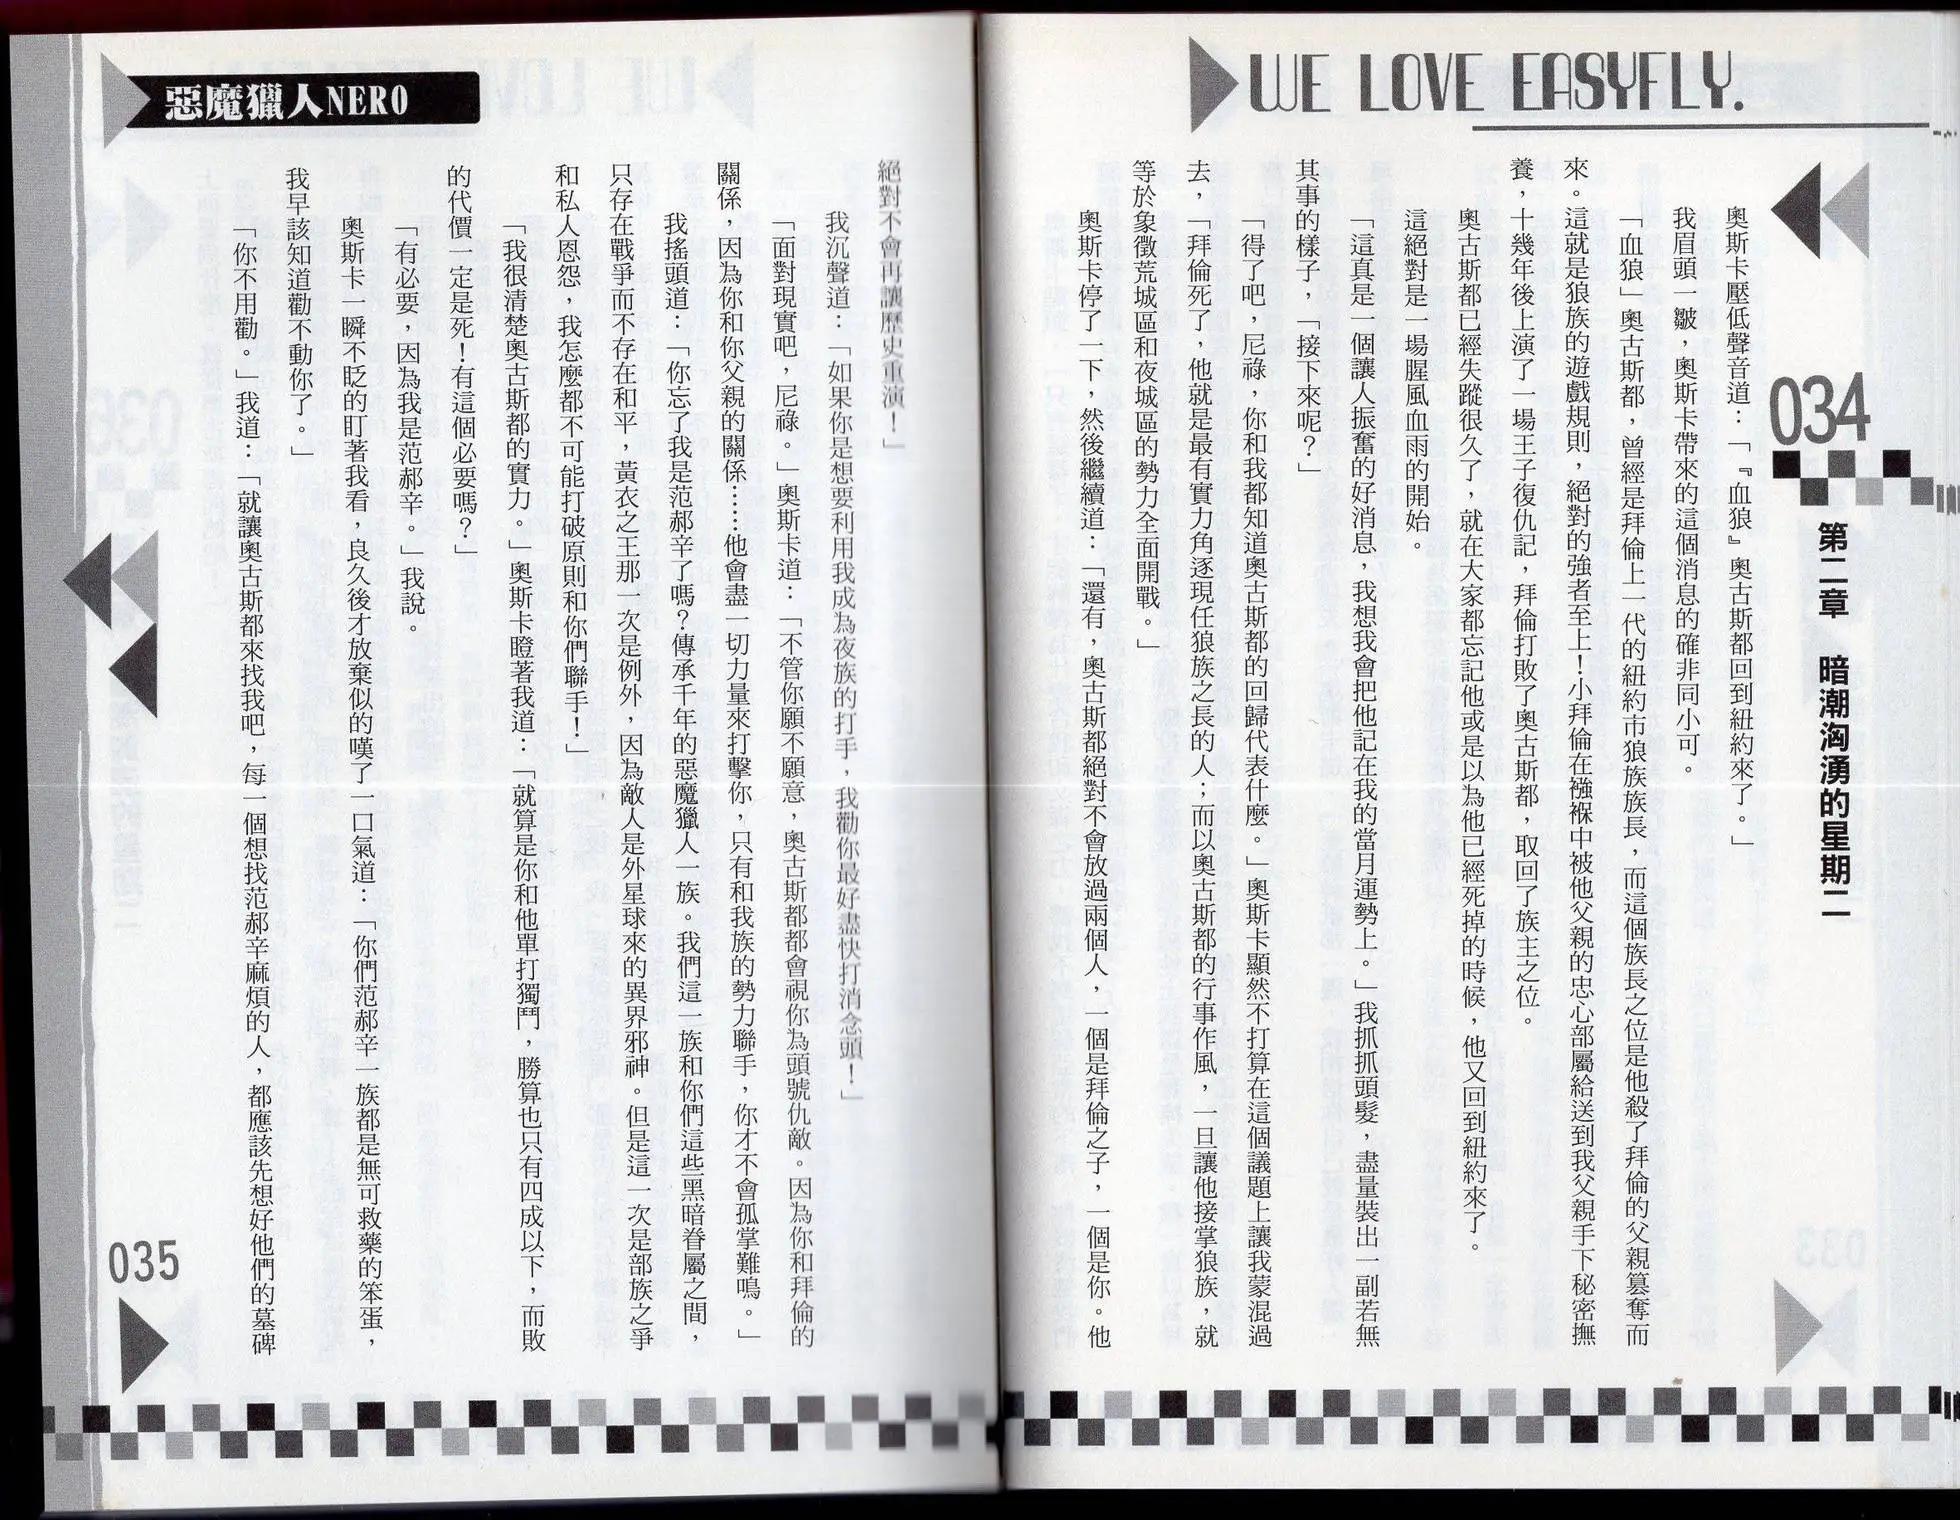 WE LOVE EASYFLY.
034
第二章 暗潮洶湧的星期二
奧斯卡壓低聲音道：「『血狼』奧古斯都回到紐約來了。」
我眉頭一皺，奧斯卡帶來的這個消息的確非同小可。
「血狼」奧古斯都，曾經是拜倫上一代的紐約市狼族族長，而這個族長之位是他殺了拜倫的父親篡奪而
來。這就是狼族的遊戲規則，絕對的強者至上！小拜倫在襁褓中被他父親的忠心部屬給送到我父親手下秘密撫
養，十幾年後上演了一場王子復仇記，拜倫打敗了奧古斯都，取回了族主之位。
奧古斯都已經失蹤很久了，就在大家都忘記他或是以為他已經死掉的時候，他又回到紐約來了。
這絕對是一場腥風血雨的開始。
「這真是一個讓人振奮的好消息，我想我會把他記在我的當月運勢上。」我抓抓頭髮，盡量裝出一副若無
其事的樣子，「接下來呢？」
「得了吧，尼祿，你和我都知道奧古斯都的回歸代表什麼。」奧斯卡顯然不打算在這個議題上讓我蒙混過
去，「拜倫死了，他就是最有實力角逐現任狼族之長的人；而以奧古斯都的行事作風，一旦讓他接掌狼族，就
等於象徵荒城區和夜城區的勢力全面開戰。」
奧斯卡停了一下，然後繼續道：「還有，奧古斯都絕對不會放過兩個人，一個是拜倫之子，一個是你。他
惡魔獵人NERO
絕對不會再讓歷史重演！」
我沉聲道：「如果你是想要利用我成為夜族的打手，我勸你最好盡快打消念頭！」
「面對現實吧，尼祿。」奧斯卡道：「不管你願不願意，奧古斯都都會視你為頭號仇敵。因為你和拜倫的
關係，因為你和你父親的關係……他會盡一切力量來打擊你，只有和我族的勢力聯手，你才不會孤掌難鳴。」
我搖頭道：「你忘了我是范郝辛了嗎？傳承千年的惡魔獵人一族。我們這一族和你們這些黑暗眷屬之間，
只存在戰爭而不存在和平，黃衣之王那一次是例外，因為敵人是外星球來的異界邪神。但是這一次是部族之爭
和私人恩怨，我怎麼都不可能打破原則和你們聯手！」
「我很清楚奧古斯都的實力。」奧斯卡瞪著我道：「就算是你和他單打獨鬥，勝算也只有四成以下，而敗
的代價一定是死！有這個必要嗎？」
「有必要，因為我是范郝辛。」我說。
奧斯卡一瞬不眨的盯著我看，良久後才放棄似的嘆了一口氣道：「你們范郝辛一族都是無可救藥的笨蛋，
我早該知道勸不動你了。」
「你不用勸。」我道：「就讓奧古斯都來找我吧，每一個想找范郝辛麻煩的人，都應該先想好他們的墓碑
035